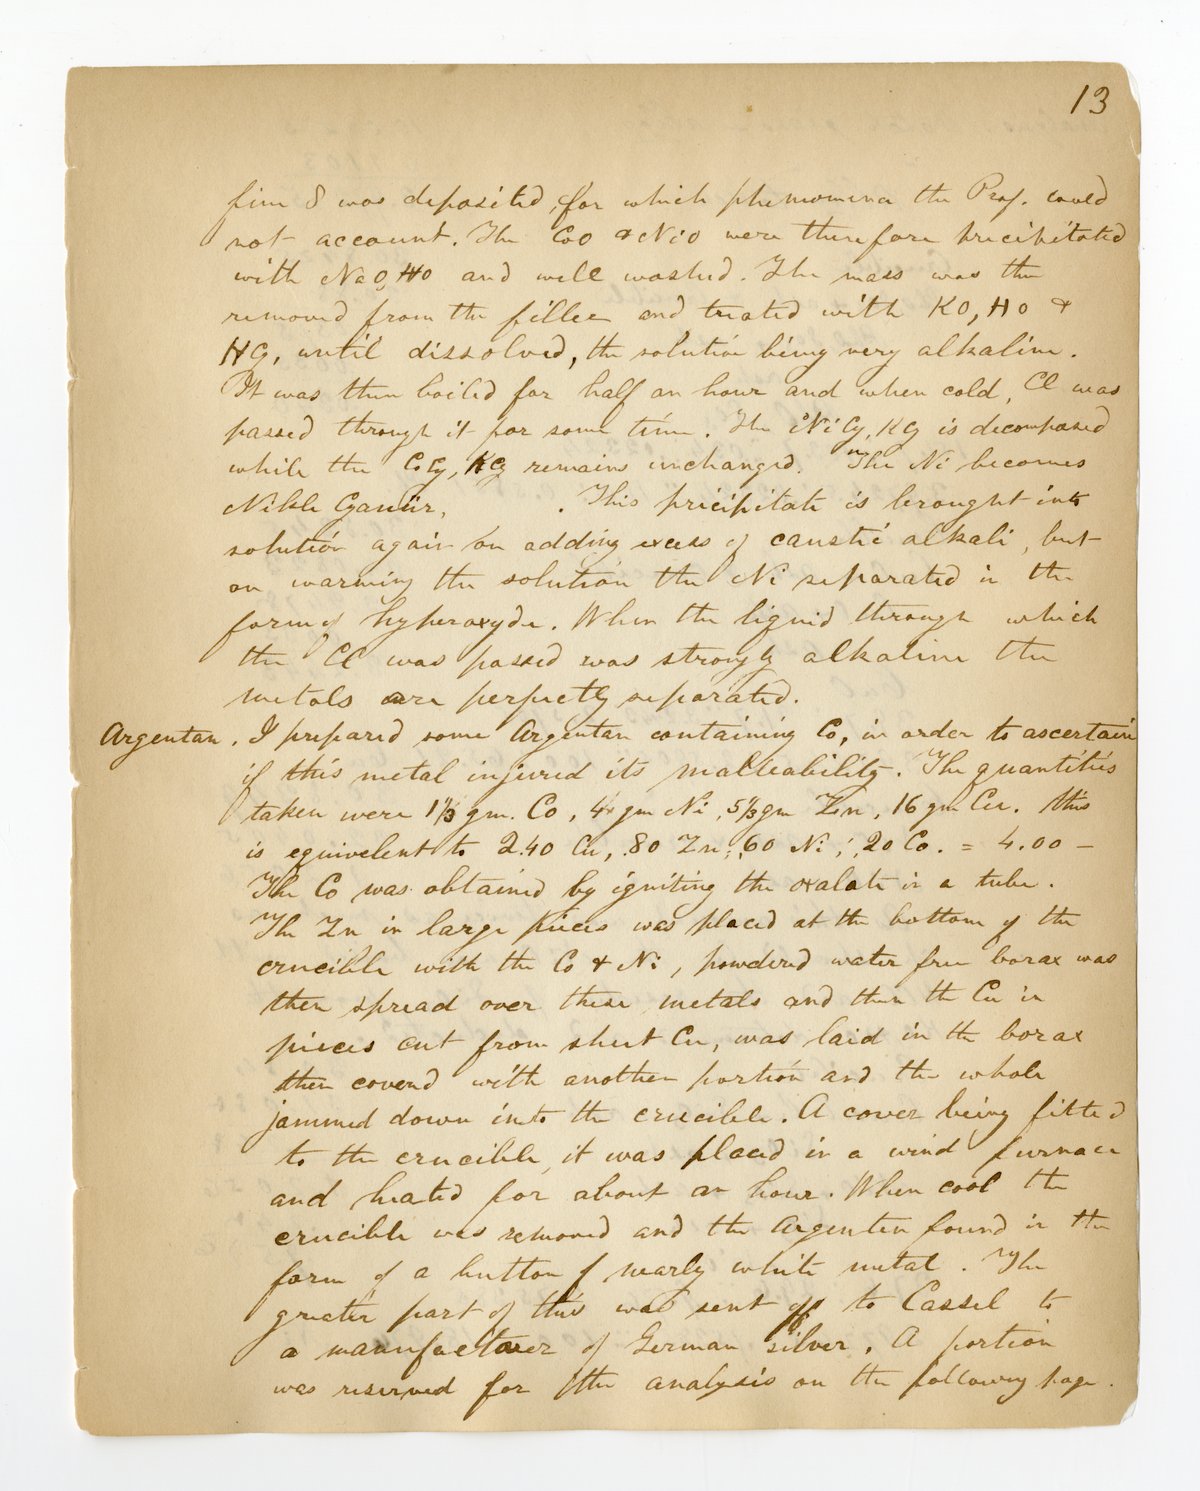 13
fine S was deposited, for which phenomena the Prof. could
not account. The CoO & NiO were therefore precipitated
with NaO,HO and well washed. The mass was then
removed from the filter and treated with KO, HO &
HCy, until dissolved, the solution being very alkaline.
It was then boiled for half an hour and when cold, Cl was
passed through it for some time. The NiCy, KCy is decomposed
while the CoCy, KCy remains unchanged. The Ni becomes
Nikle Cyanür, . This precipitate is brought into
solution again on adding excess of caustic alkali, but
on warming the solution the Ni separated in the
form of hyperoxyde. When the liquid through which
the Cl was passed was strongly alkaline the
metals are perfectly separated.
Argentan. I prepared some Argentan containing Co, in order to ascertain
if this metal injured its malleability. The quantities
taken were 1 1/3 gm. Co, 4 gm Ni, 5 1/3 gm Zn, 16 gm Cu. this
is equivelent to 2.40 Cu, .80 Zn, .60 Ni, .20 Co. = 4.00 –
The Co was obtained by igniting the oxalate in a tube.
The Zn in large pieces was placed at the bottom of the
crucible with the Co & Ni, powdered water free borax was
then spread over these metals and then the Cu in
pieces cut from sheet Cu, was laid in the borax
then coverd with another portion and the whole
jammed down into the crucible. A cover being fitted
to the crucible, it was placed in a wind furnace
and heated for about an hour. When cool the
crucible was removed and the Argenten found in the
form of a button of nearly white metal. The
greater part of this was sent off to Cassel to
a manufacturer of German silver. A portion
was reserved for the analysis on the following page.